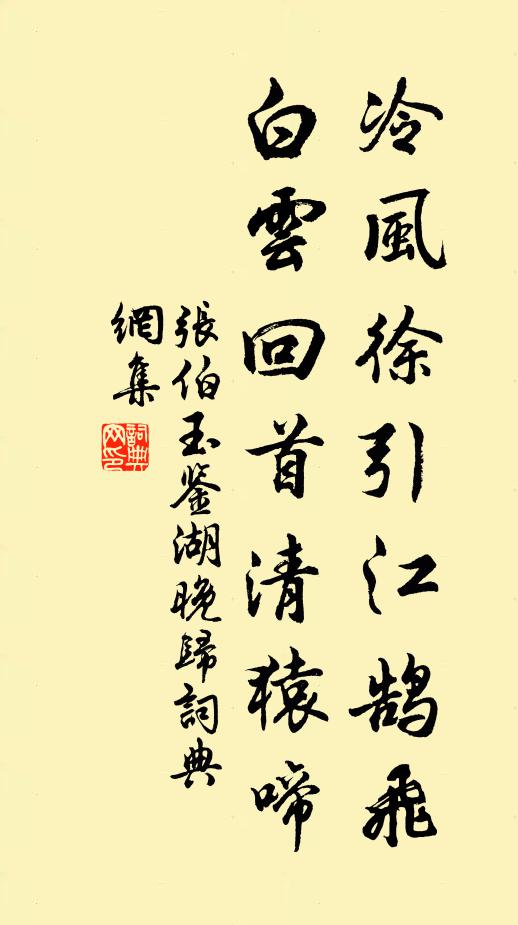 冷風徐引江鵠飛
白雲回首清猿啼
張伯玉鉴湖晚歸詞典
網集
詞典網印